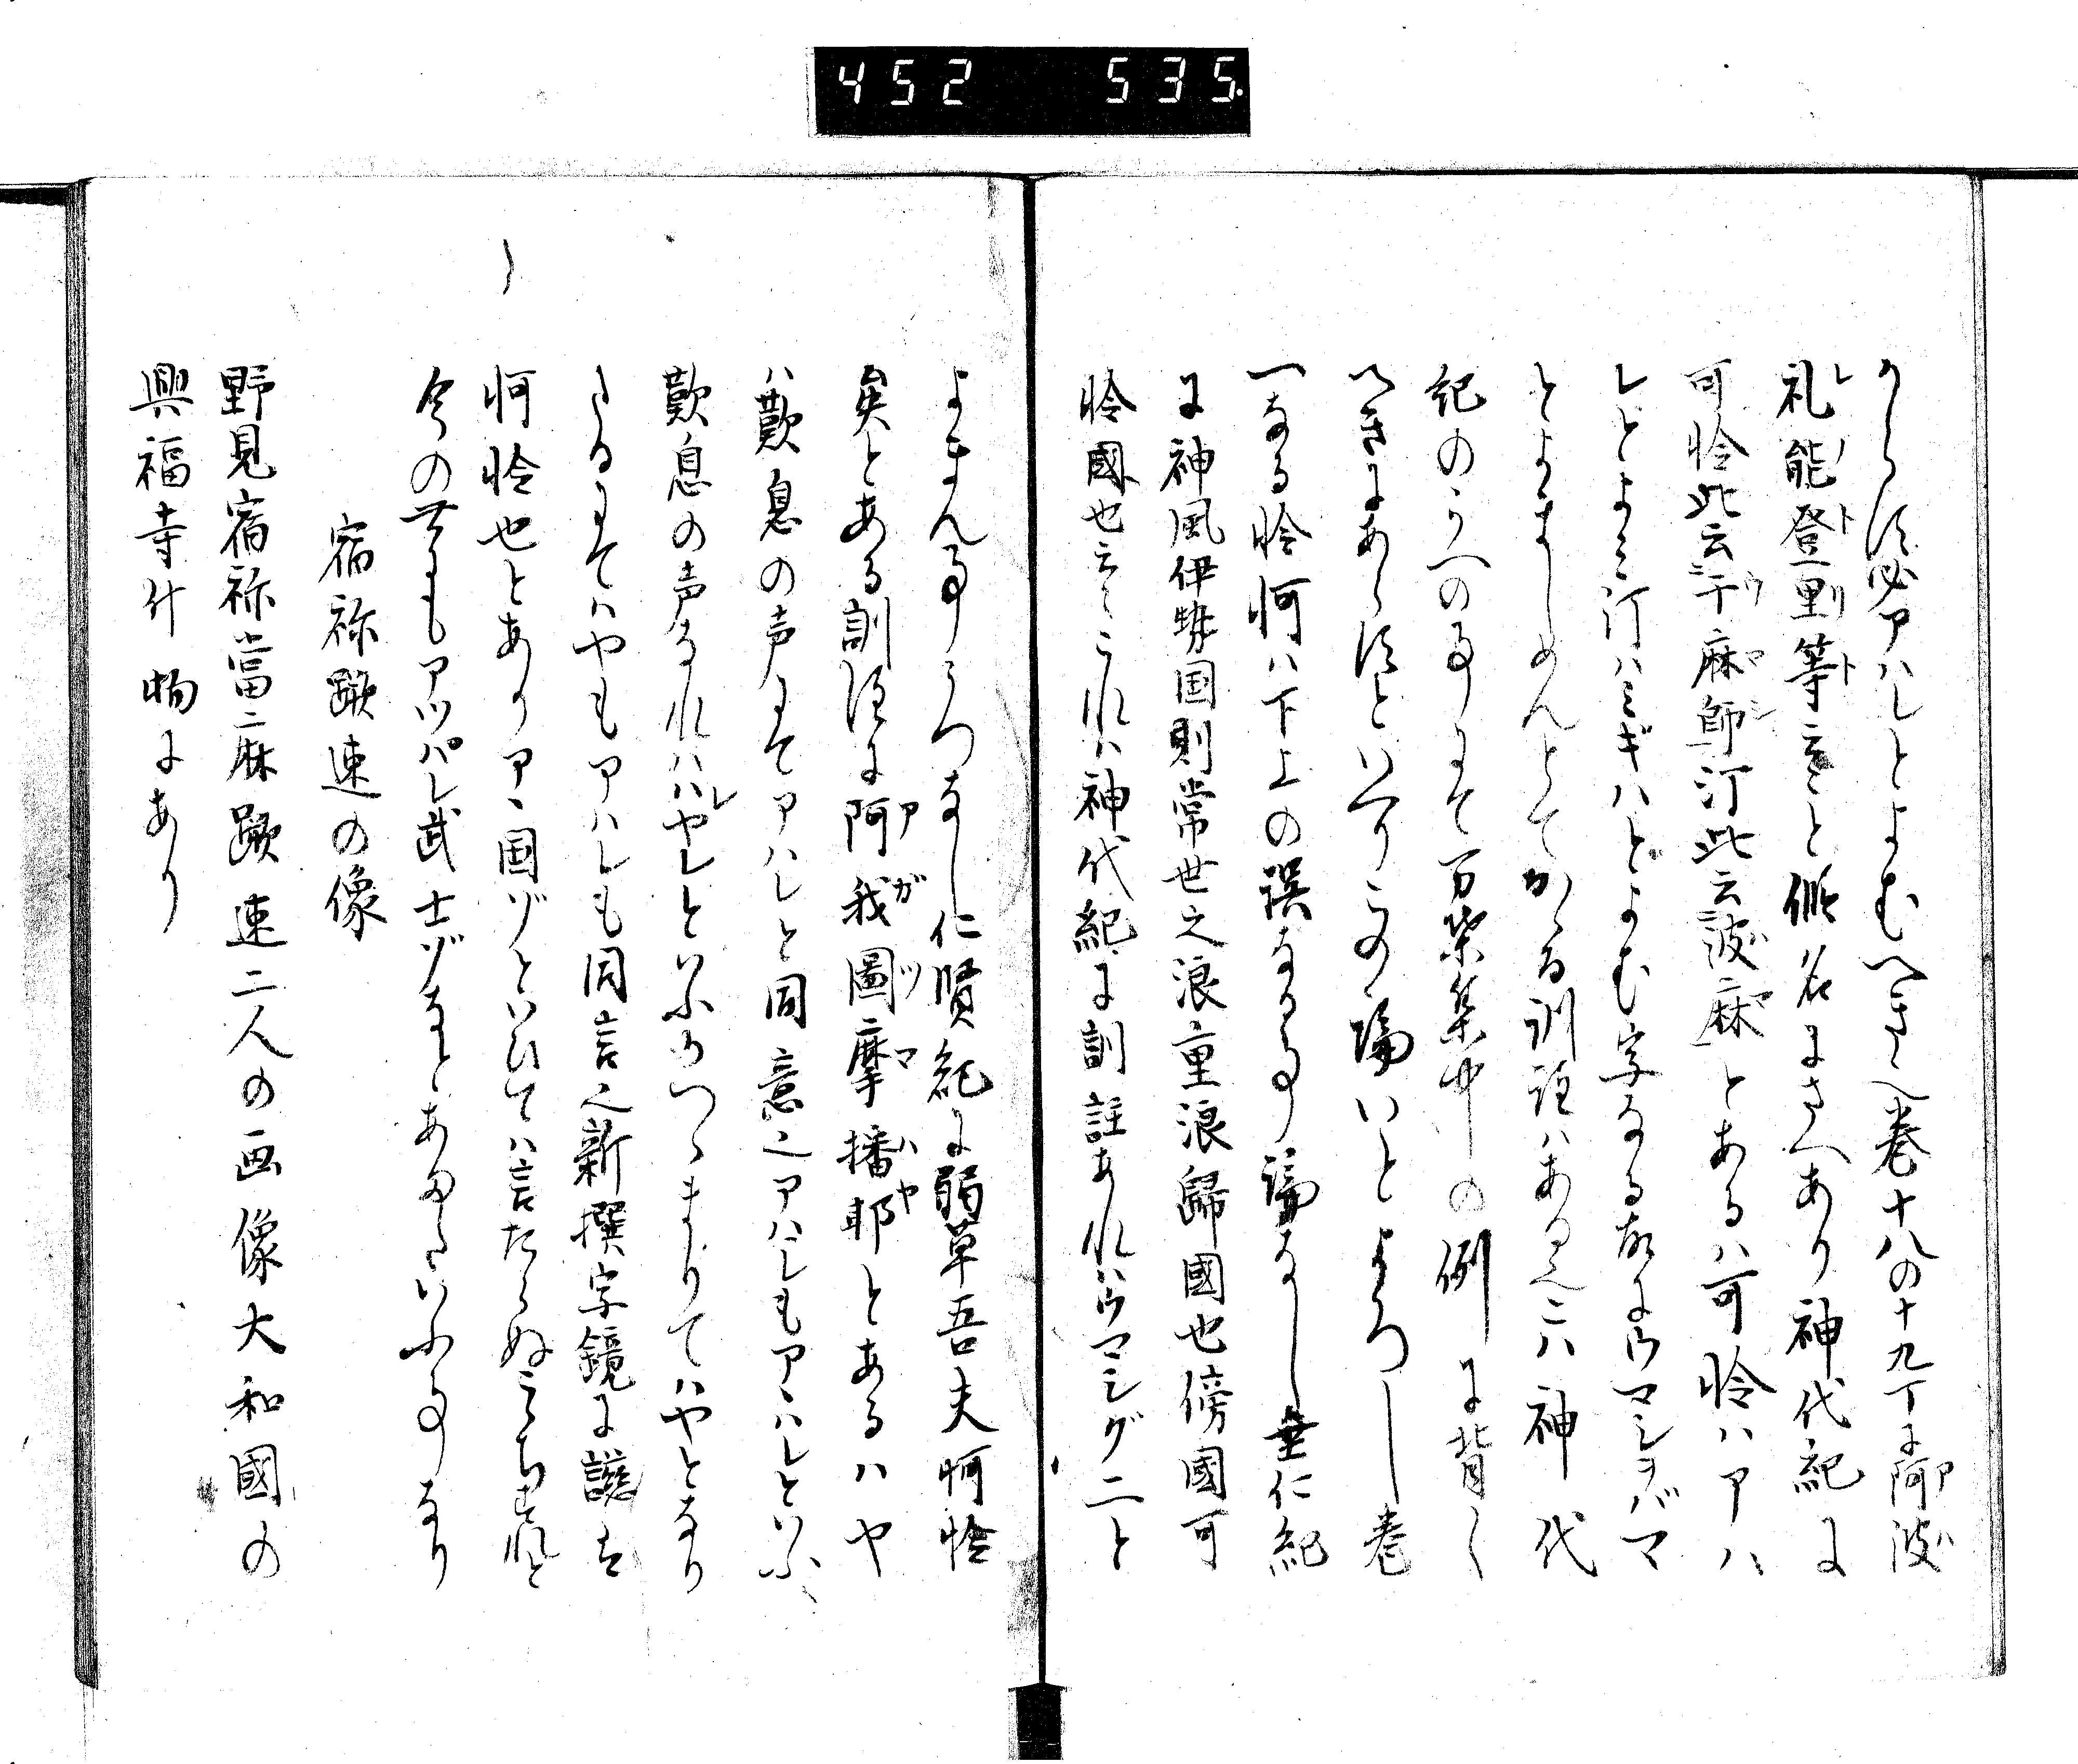 452 535.
からす必アハレとよむへき也巻十八の十九丁に阿波
礼能登里等云々と仮名にさへあり神代紀に
可怜此云于麻師汀此云波麻とあるハ可怜ハアハ
レとよミ汀ハミギハとよむ字なる故にウマシヲバマ
とよましめんとてかゝる訓註ハある也こハ神代
紀のうへの事にて万葉集中の例に背く
へきにあらすといへりこの論いとよろし巻
一なる怜𪫧ハ下上の誤なる事論なし垂仁紀
に神風伊勢国則常世之浪重浪歸國也傍國可
怜國也云々これハ神代紀に訓註あれハウマシグニと
よまん事うつなし仁賢紀に弱草吾夫𪫧怜
矣とある訓注に阿我圖摩播耶とあるハヤ
ハ歎息の声にてアハレと同意也アハレもアヽハレといふ
歎息の声なれハハレヤレといふのつゝまりてハヤとなり
たるにてハヤもアハレも同言也新撰字鏡に譩を
𪫧怜也とありアヽ国ゾといひてハ言たらぬこゝちすれと
今の世にもアッパレ武士ゾなとゝあまたいふ事なり
宿祢蹶速の像
野見宿祢當麻蹶速二人の画像大和國の
興福寺什物にあり